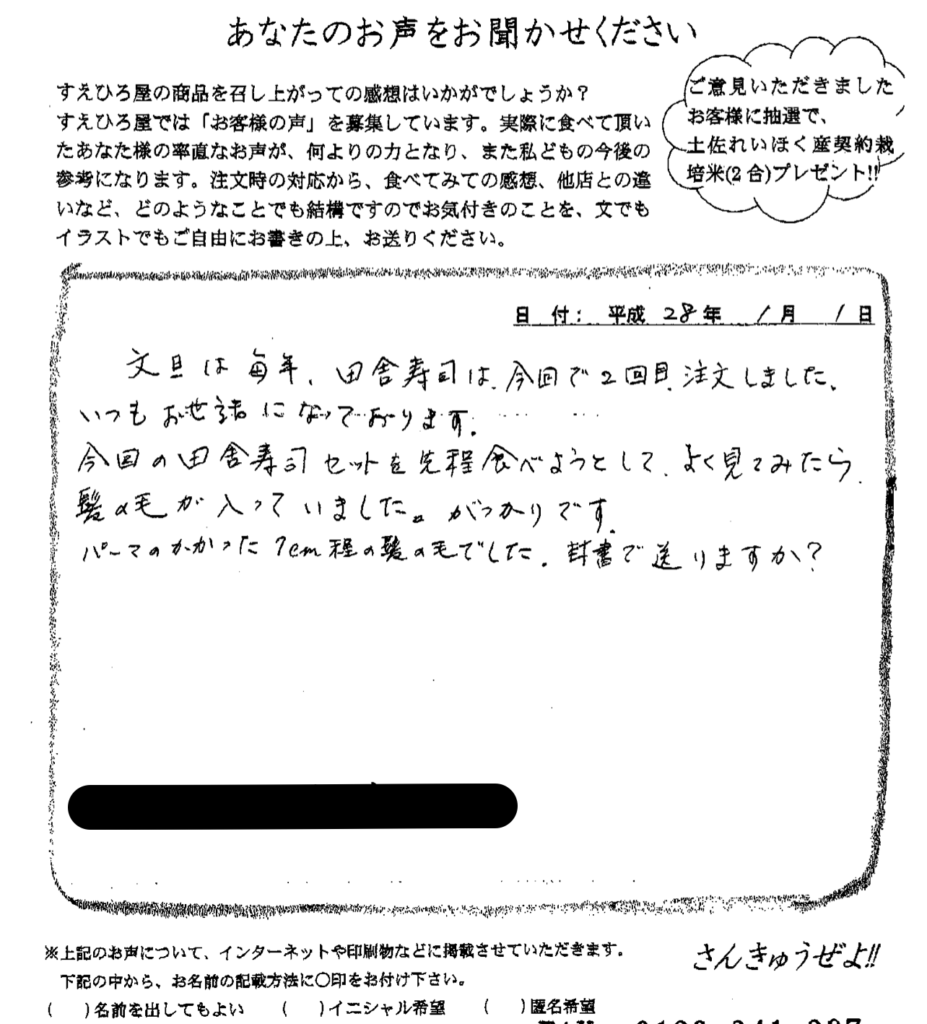 あなたのお声をお聞かせください
すえひろ屋の商品を召し上がっての感想はいかがでしょうか？
すえひろ屋では「お客様の声」を募集しています。実際に食べて頂い
たあなた様の率直なお声が、何よりの力となり、また私どもの今後の
参考になります。注文時の対応から、食べてみての感想、他店との違
いなど、どのようなことでも結構ですのでお気付きのことを、文でも
イラストでもご自由にお書きの上、お送りください。
ご意見いただきました
お客様に抽選で、
土佐れいほく産契約栽
培米(2合)プレゼント!!
日 付： 平成 28年 1月 1日
文旦は毎年、田舎寿司は、今回で2回目、注文しました、
いつもお世話になっております。
今回の田舎寿司セットを先程食べようとして、よく見てみたら、
髪の毛が入っていました。がっかりです。
パーマのかかった7cm程の髪の毛でした。封書で送りますか？
※上記のお声について、インターネットや印刷物などに掲載させていただきます。
下記の中から、お名前の記載方法に○印をお付け下さい。
( )名前を出してもよい ( )イニシャル希望 ( )匿名希望
さんきゅうぜよ!!